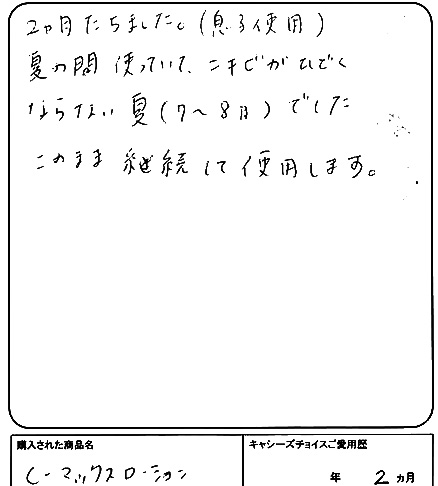 2ヶ月たちました。(息子使用)
夏の間使っていて、ニキビがひどく
ならない夏(7〜8月)でした
このまま継続して使用します。
購入された商品名
キャシーズチョイスご愛用歴
C-マックスローション
年 2 ヵ月